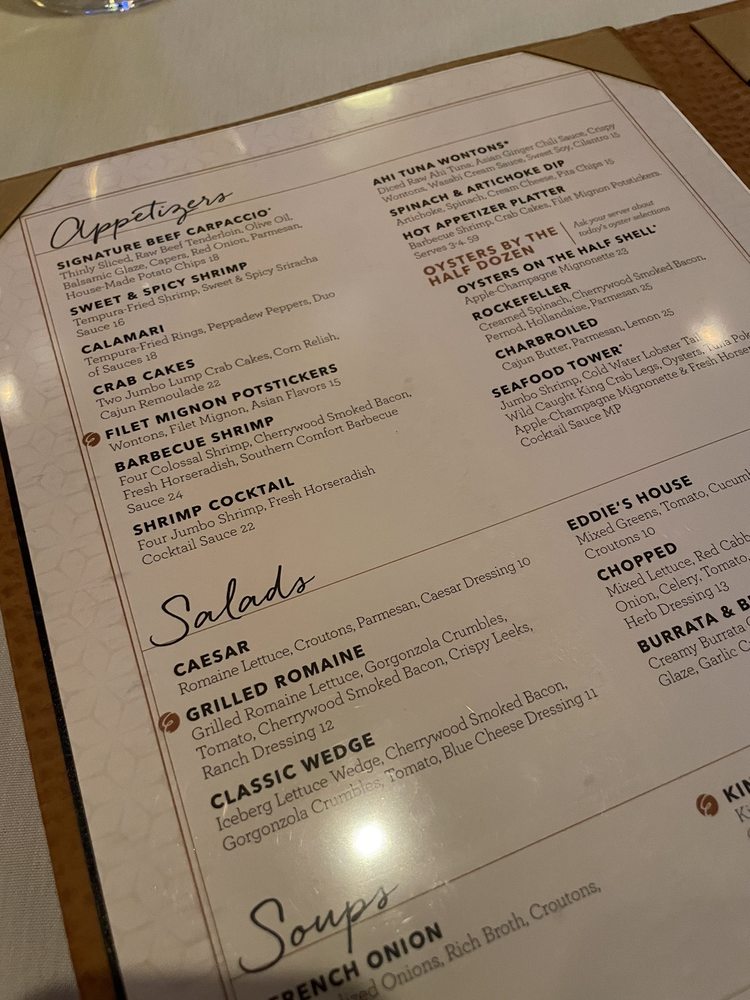 Appetizers
SIGNATURE BEEF CARPACCIO*
Thinly Sliced, Raw Beef Tenderloin, Olive Oil,
Balsamic Glaze, Capers, Red Onion, Parmesan,
House-Made Potato Chips 18
SWEET & SPICY SHRIMP
Tempura-Fried Shrimp, Sweet & Spicy Sriracha
Sauce 16
CALAMARI
Tempura-Fried Rings, Peppadew Peppers, Duo
of Sauces 18
CRAB CAKES
Two Jumbo Lump Crab Cakes, Corn Relish,
Cajun Remoulade 22
FILET MIGNON POTSTICKERS
Wontons, Filet Mignon, Asian Flavors 15
BARBECUE SHRIMP
Four Colossal Shrimp, Cherrywood Smoked Bacon,
Fresh Horseradish, Southern Comfort Barbecue
Sauce 24
SHRIMP COCKTAIL
Four Jumbo Shrimp, Fresh Horseradish
Cocktail Sauce 22
AHI TUNA WONTONS*
Diced Raw Ahi Tuna, Asian Ginger Chili Sauce, Crispy
Wontons, Wasabi Cream Sauce, Sweet Soy, Cilantro 15
SPINACH & ARTICHOKE DIP
Artichoke, Spinach, Cream Cheese, Pita Chips 15
HOT APPETIZER PLATTER
Barbecue Shrimp, Crab Cakes, Filet Mignon Potstickers.
Serves 3-4 59
OYSTERS BY THE
HALF DOZEN
Ask your server about
today's oyster selections
OYSTERS ON THE HALF SHELL*
Apple-Champagne Mignonette 23
ROCKEFELLER
Creamed Spinach, Cherrywood Smoked Bacon,
Pernod, Hollandaise, Parmesan 25
CHARBROILED
Cajun Butter, Parmesan, Lemon 25
SEAFOOD TOWER*
Jumbo Shrimp, Cold Water Lobster
Wild Caught King Crab Legs, Oysters, Tuna
Apple-Champagne Mignonette & Fresh
Cocktail Sauce MP
Salads
CAESAR
Romaine Lettuce, Croutons, Parmesan, Caesar Dressing 10
GRILLED ROMAINE
Grilled Romaine Lettuce, Gorgonzola Crumbles,
Tomato, Cherrywood Smoked Bacon, Crispy Leeks,
Ranch Dressing 12
CLASSIC WEDGE
Iceberg Lettuce Wedge, Cherrywood Smoked Bacon,
Gorgonzola Crumbles, Tomato, Blue Cheese Dressing 11
EDDIE'S HOUSE
Mixed Greens, Tomato,
Croutons 10
CHOPPED
Mixed Lettuce, Red
Onion, Celery, Tomato,
Herb Dressing 13
BURRATA &
Creamy Burrata
Glaze, Garlic
Soups
FRENCH ONION
Onions, Rich Broth, Croutons,